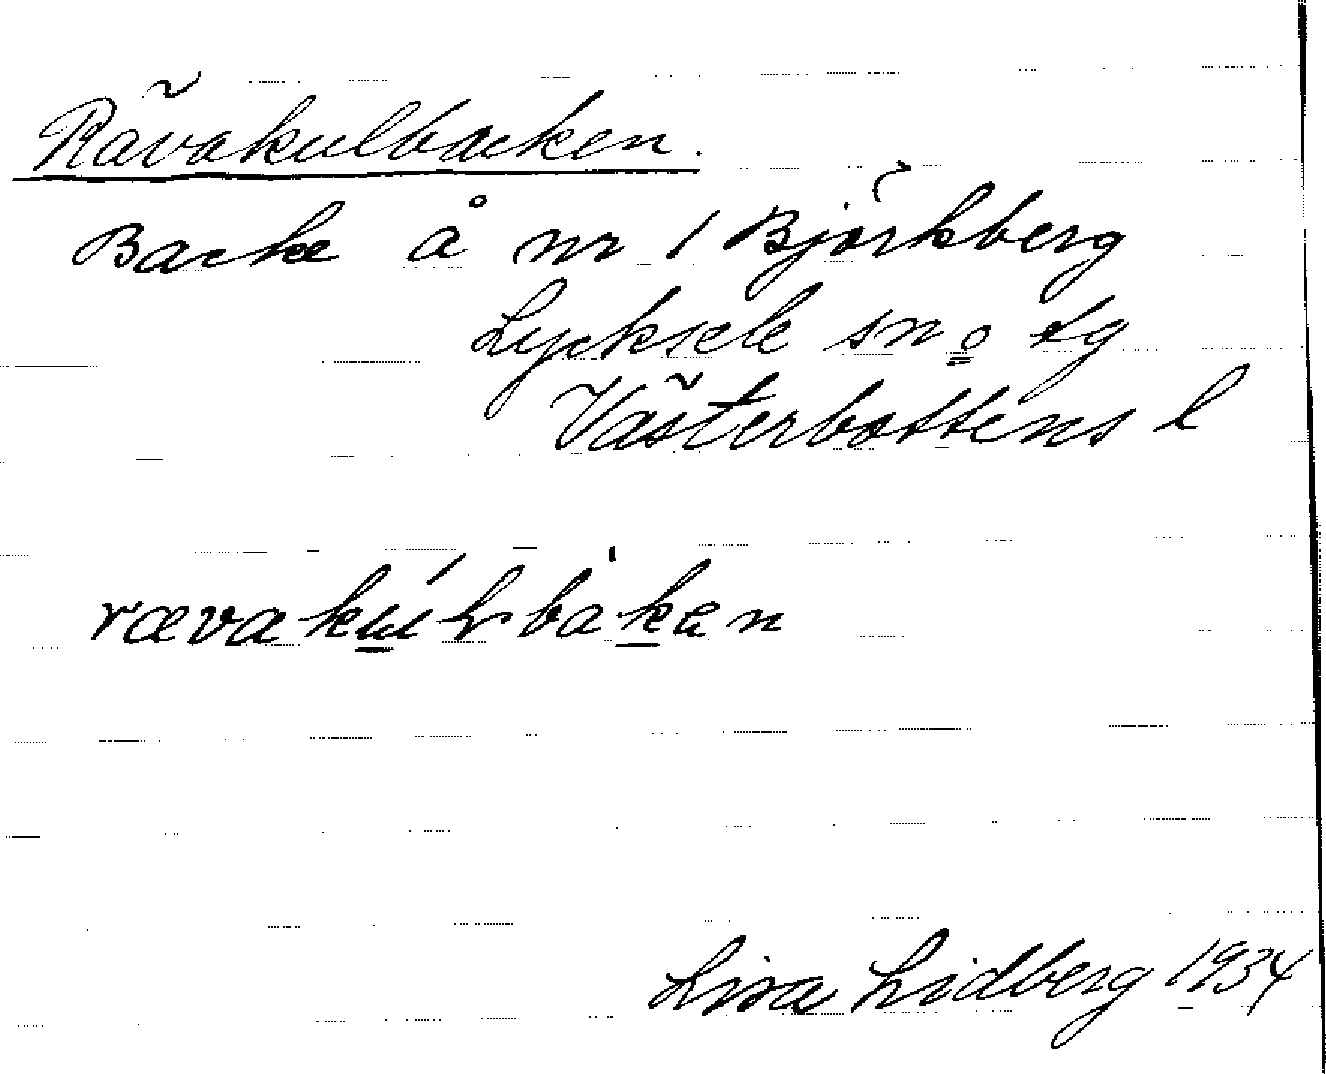 Rävakulbacken.
Backe å nr 1 Björkberg
Lycksele sn o tg
Västerbottens l
Lisa Lidberg 1934